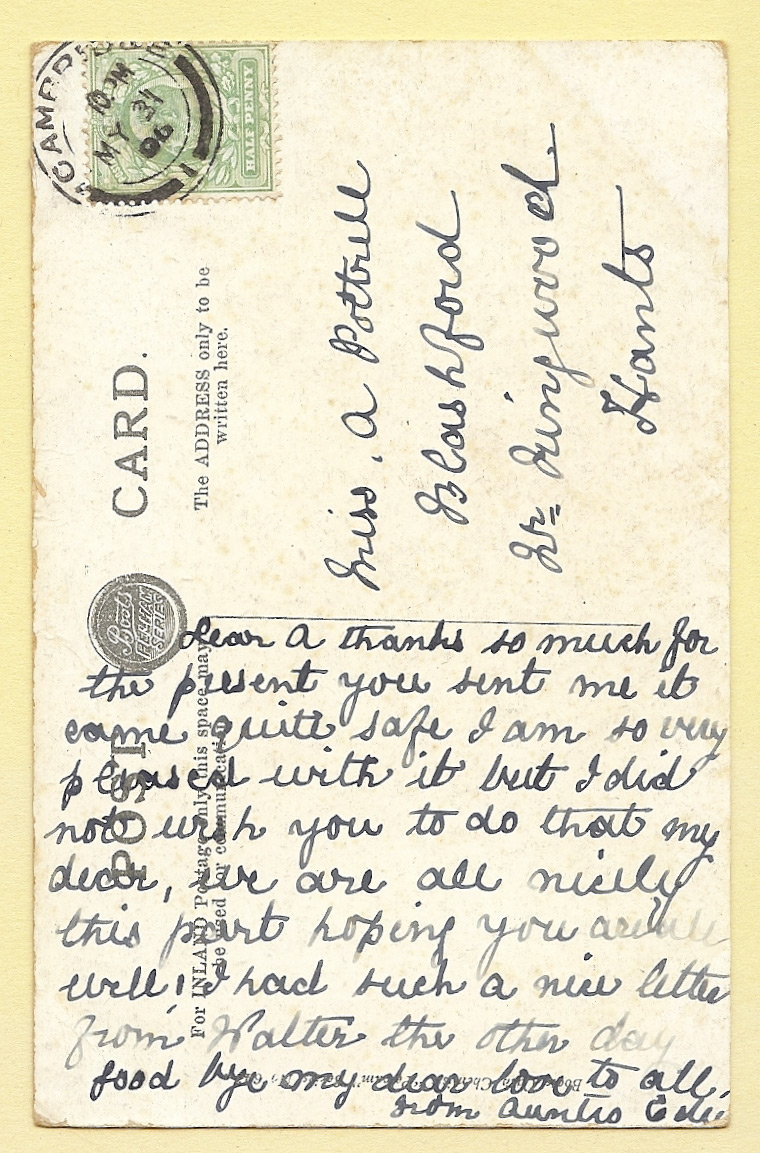 POST CARD.
Boots
PELHAM
SERIES
The ADDRESS only to be
written here.
For INLAND Postage only this space may
be used for communication
HALF PENNY
CAMBRIDGE
10 PM
MY 31
06
1
Miss. A Pottrell
Blashford
Nr Ringwood
Hants
Dear A thanks so much for
the present you sent me it
came quite safe I am so very
pleased with it but I did
not wish you to do that my
dear, we are all nicely
this part hoping you are all
well, I had such a nice letter
from Walter the other day
good bye my dear love to all.
from Auntis